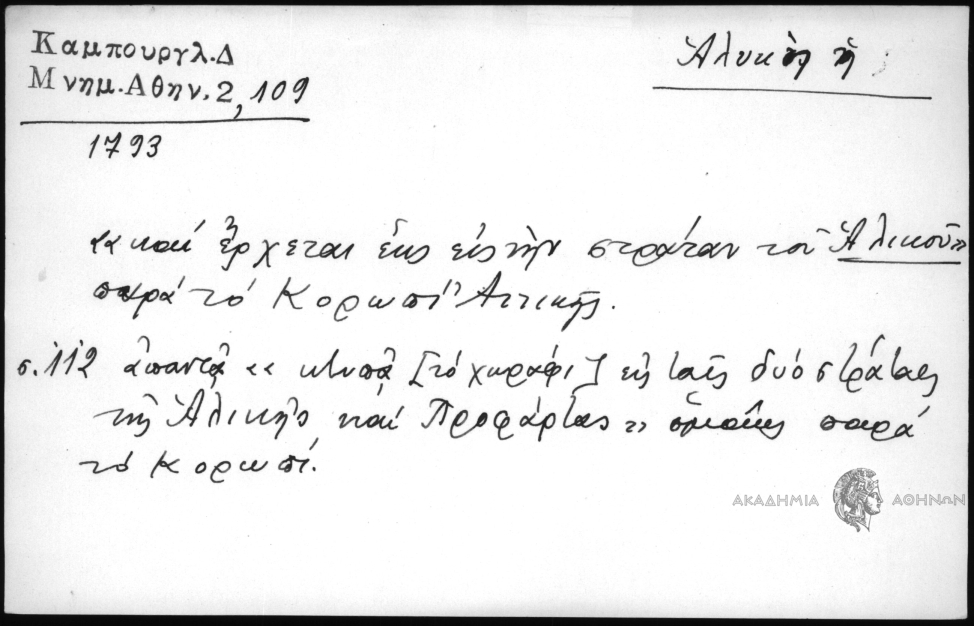 Καμπουργλ.Δ
Μνημ.Αθην. 2, 109
1793
Ἁλυκὴ ἡ
«καὶ ἔρχεται ἕως εἰς τὴν στράταν τοῦ Ἁλικοῦ»
παρὰ τὸ Κορωπὶ Ἀττικῆς.
σ. 112 ἀπαντᾶ «κτυπᾶ [τὸ χωράφι] εἰς ταῖς δυό στράταις
τῆς Ἁλικῆς καὶ Προφάρτας» ὁμοίως παρὰ
τὸ Κορωπί.
ΑΚΑΔΗΜΙΑ ΑΘΗΝΩΝ